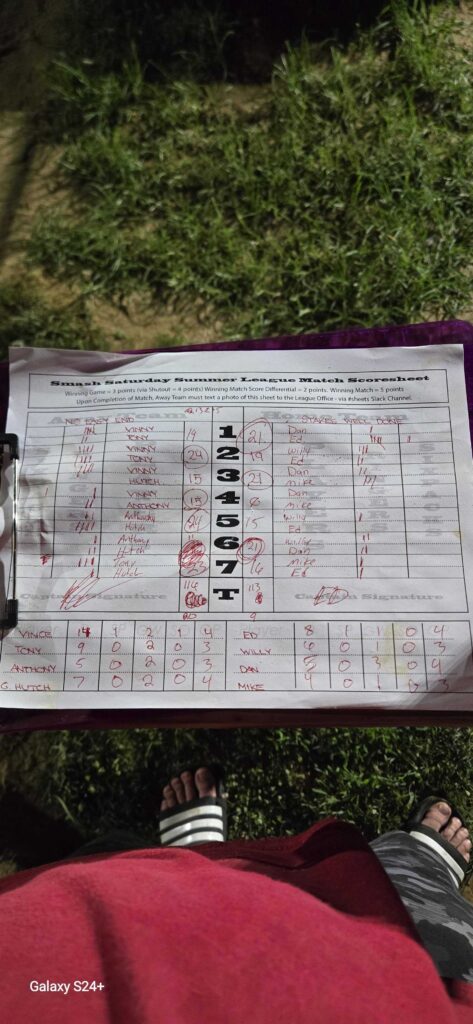 Smash Saturday Summer League Match Scoresheet
Winning Game = 3 points (via Shutout = 4 points) Winning Match Score Differential = 2 points. Winning Match = 5 points
Upon Completion of Match, Away Team must text a photo of this sheet to the League Office - via #sheets Slack Channel.
NO EASY END STAKES WELL DONE
VINNY 19 1 21 Dan
TONY Ed
VINNY 24 2 19 Willy
TONY Ed
VINNY 15 3 21 Dan
HUTCH Mike
VINNY 4 Dan
ANTHONY Mike
Anthony 5 15 Willy
Hutch Ed
Anthony 6 21
Hutch Dan
Tony 7 16 Mike
Hutch Ed
116 T 113
Captain Signature Signature
20 9
VINCE 14 1 2 1 4 ED 8 1 0 4
TONY 9 0 2 0 3 WILLY 6 0 1 0 3
ANTHONY 5 0 2 0 3 DAN 5 0 3 0 4
G. HUTCH 7 0 2 0 4 MIKE 4 0 1 3
Galaxy S24+